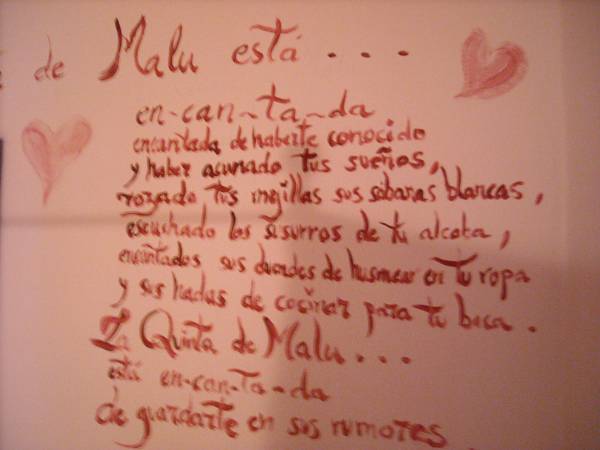 de Malu está ....
en-can-ta-da
encantada de haberte conocido
y haber acunado tus sueños,
rozado tus mejillas sus sábanas blancas,
escuchado los susurros de tu alcoba,
encantados sus duendes de husmear en tu ropa
y sus hadas de cocinar para tu boca.
La Quinta de Malu...
está en-can-ta-da
de guardarte en sus rumores